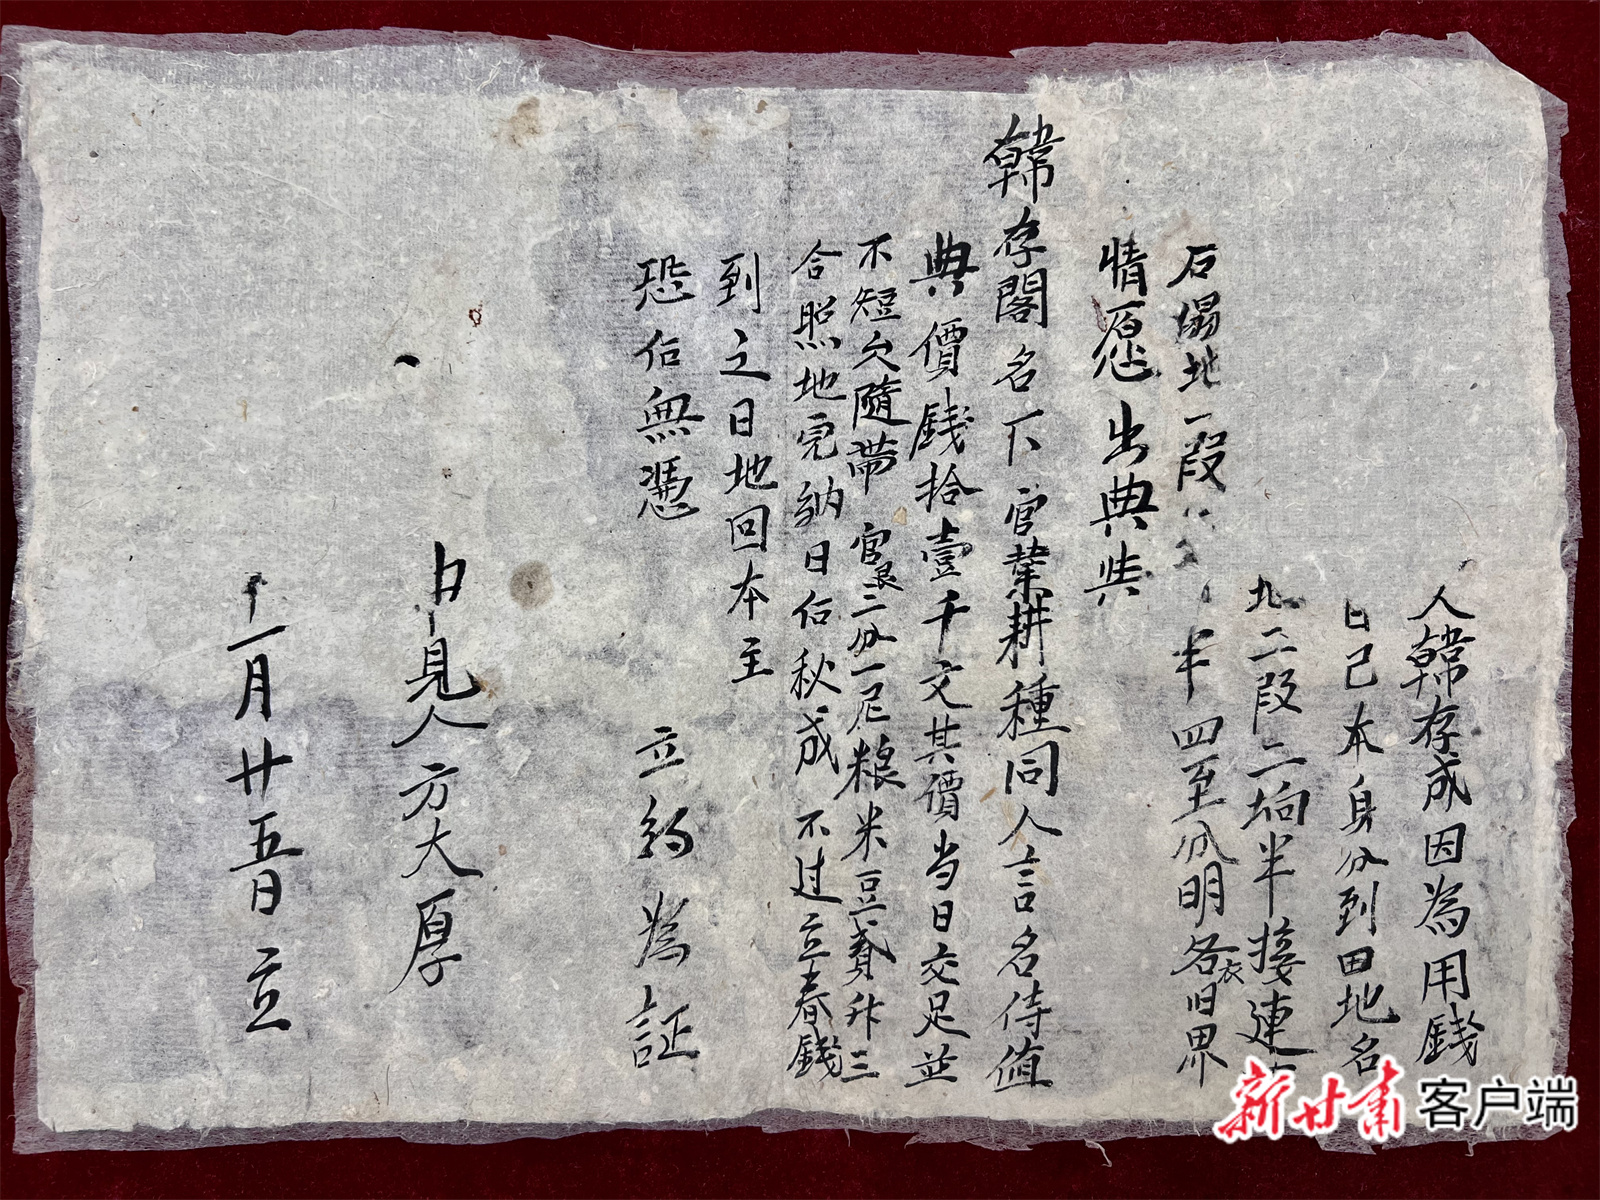 人韓存成因為用錢
己本身分到田地名
地二段二垧半接連
石 地一段 半四至分明各衣旧界
情愿出典
韓存閣名下官業耕種同人言名侍值
典價錢拾壹千文其價当日交足並
不短欠隨帶官 二分一 粮米豆貳升三
合照地完納日后秋成不过立春錢
到之日地回本主
恐后無憑 立約為証
中見人方大厚
十一月廿五日立
新甘肃客户端